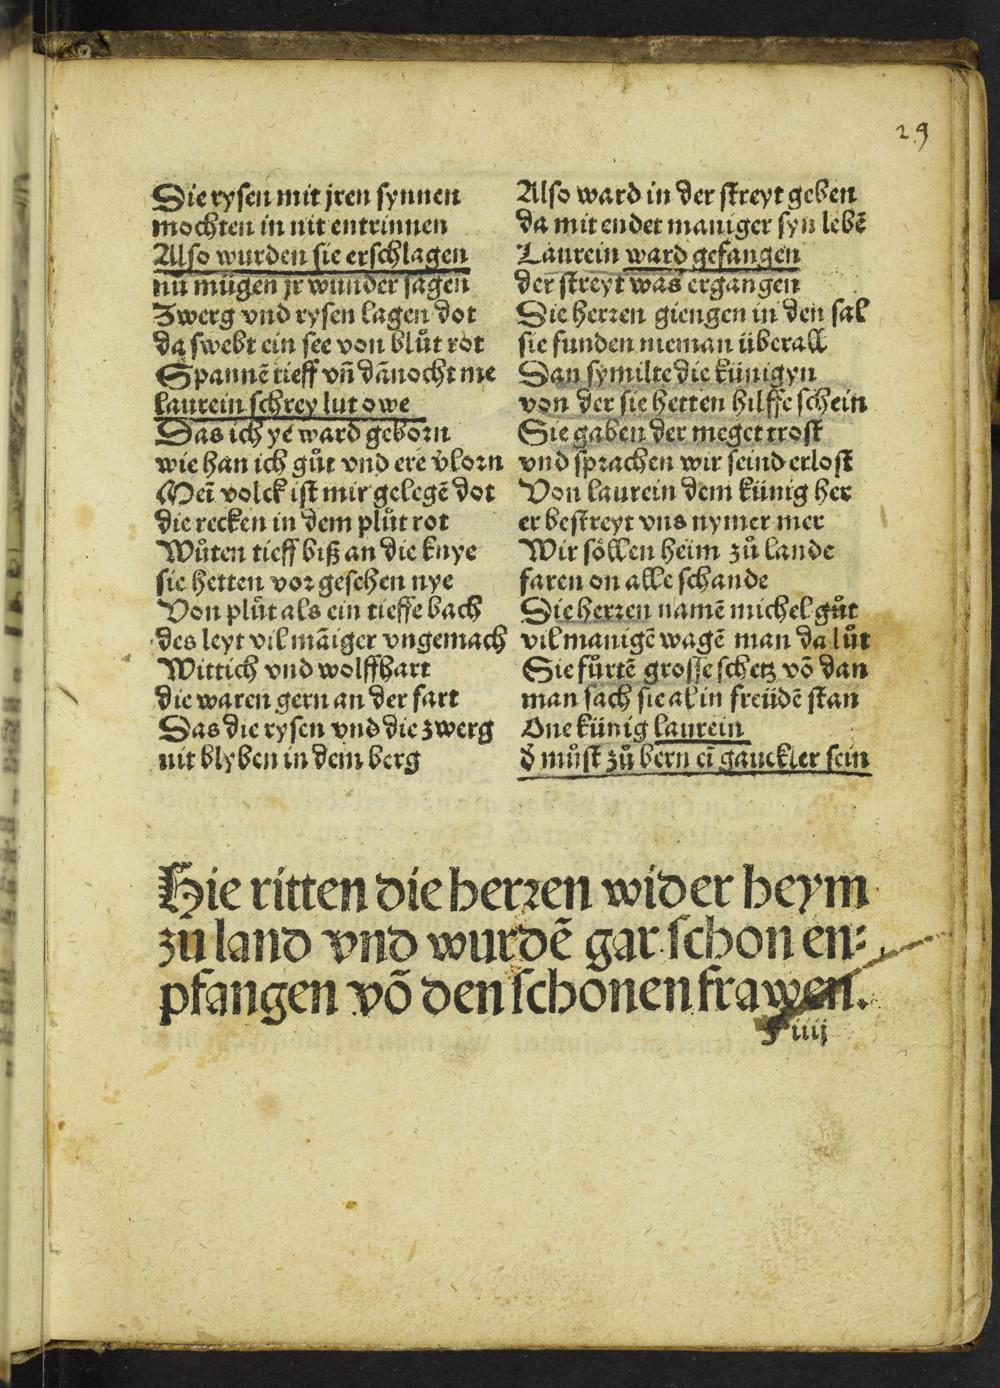 29
Die rysen mit jren synnen
mochten in nit entrinnen
Also wurden sie erschlagen
nů mügen jr wunder sagen
Zwerg vnd rysen lagen dot
da swebt ein see von blůt rot
Spannē tieff vñ dānocht me
laurein schrey lut owe
Das ich ye ward geborn
wie han ich gůt vnd ere v̓lorn
Meī volck ist mir gelegē dot
die recken in dem plůt rot
Wůten tieff biß an die knye
sie hetten vor gesehen nye
Von plůt als ein tieffe bach
des leyt vil māiger vngemach
Wittich vnd wolffhart
die waren gern an der fart
Das die rysen vnd die zwerg
nit blyben in dem berg
Also ward in der streyt geben
da mit endet maniger syn lebē
Laurein ward gefangen
der streyt was ergangen
Die herren giengen in den sal
sie funden nieman überall
Dan symilte die künigyn
von der sie hetten hilffe schein
Sie gaben der meget trost
vnd sprachen wir seind erlost
Von laurein dem künig her
er bestreyt vns nymer mer
Wir söllen heim zů lande
faren on alle schande
Die herren namē michel gůt
vil manigē wagē man da lůt
Sie fůrtē grosse schetz vō dan
man sach sie al in freüdē stan
One künig laurein
d̓ můst zů bern eī gauckler sein
Hie ritten die herren wider heym
zů land vnd wurdē gar schon en⸗
pfangen vō den schonen frawen.
F iiij